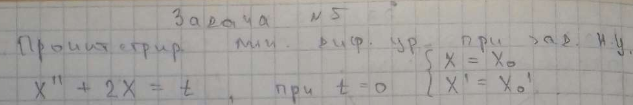 Задача №5
Проинтегрир. лин. диф. ур. при зад. н.у.
x'' + 2x = t, при t = 0 { x = x₀
x' = x₀'